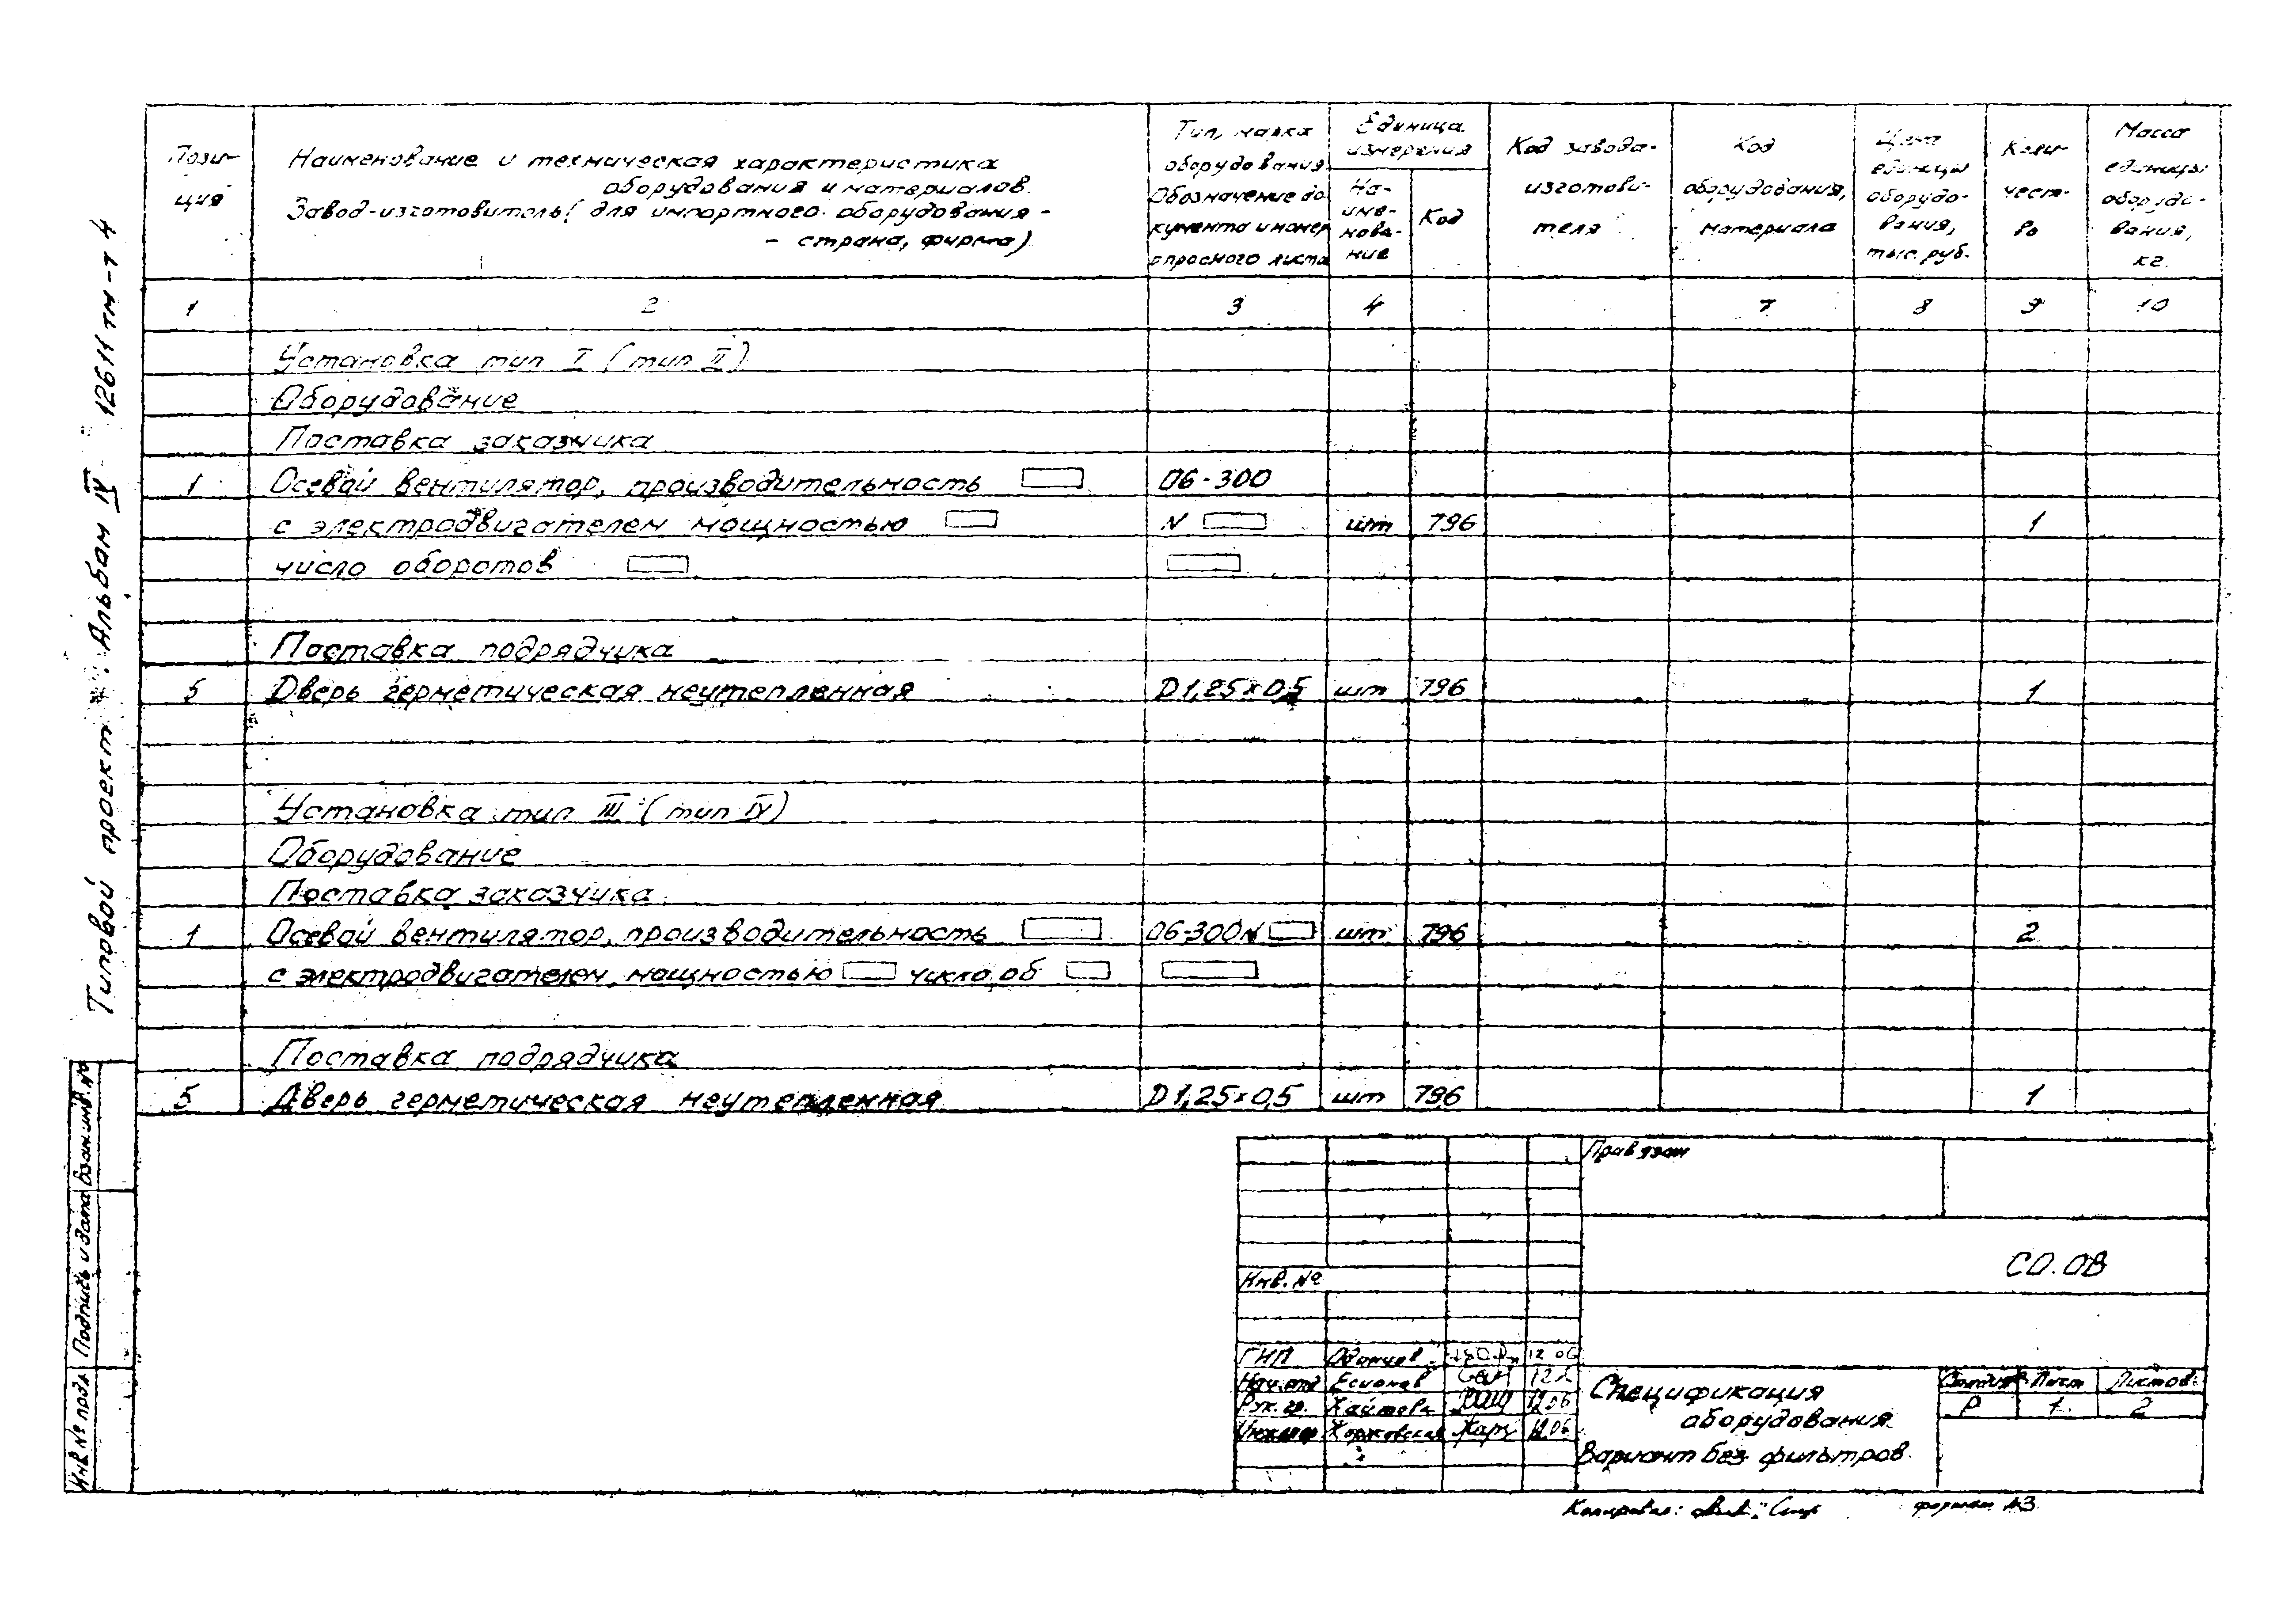 Типовой проект Альбом IV 12611тм-т 4
Пози-
ция
Наименование и техническая характеристика
оборудования и материалов.
Завод-изготовитель( для импортного оборудования -
- страна, фирма)
Тип, марка
оборудования
Обозначение до
кумента и номер
опросного листа
Единица
измерения
На-
име-
нова-
ние
Код
Код завода-
изготови-
теля
Код
оборудования,
материала
Цена
единицы
оборудо-
вания,
тыс. руб.
Коли-
чест-
во
Масса
единицы
оборудо-
вания,
кг.
1 2 3 4 7 8 9 10
Установка тип I (тип II)
Оборудование
Поставка заказчика
1 Осевой вентилятор, производительность 06-300
с электродвигателем мощностью N шт 796 1
число оборотов
Поставка подрядчика
5 Дверь герметическая неутепленная D1,25x0,5 шт 796 1
Установка тип III (тип IV)
Оборудование
Поставка заказчика
1 Осевой вентилятор, производительность 06-300N шт 796 2
с электродвигателем, мощностью число об
Поставка подрядчика
5 Дверь герметическая неутепленная D1,25x0,5 шт 796 1
Взам.инв.№
Подпись и дата
Инв № подл
Привязан
СО.ОВ
Инв. №
ГИП
Нач.отд
Рук. гр.
Инженер
Спецификация
оборудования
Вариант без фильтров
Стадия Лист Листов
Р 1 2
Копировал:
формат А3